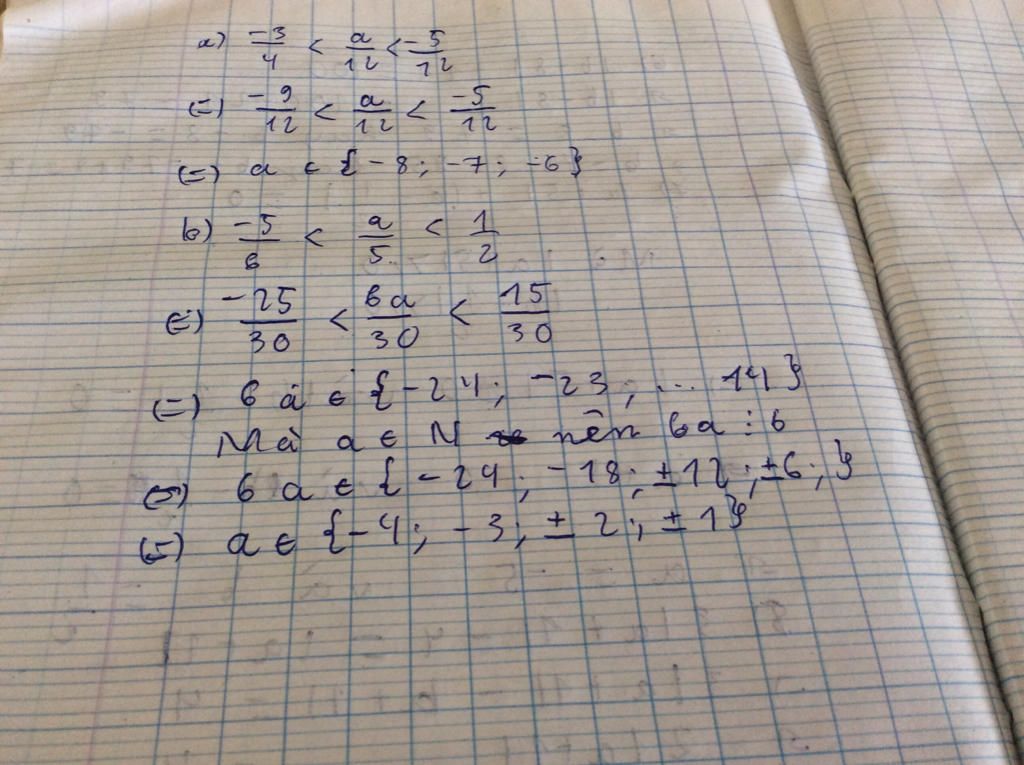 a) -3/4 < a/12 < -5/12
(=) -9/12 < a/12 < -5/12
(=) a ∈ {-8; -7; -6}
b) -5/6 < a/5 < 1/2
(=) -25/30 < 6a/30 < 15/30
(=) 6a ∈ {-24; -23; ... 14}
Mà a ∈ N nên 6a ⋮ 6
(=) 6a ∈ {-24; -18; ±12; ±6; }
(=) a ∈ {-4; -3; ±2; ±1}